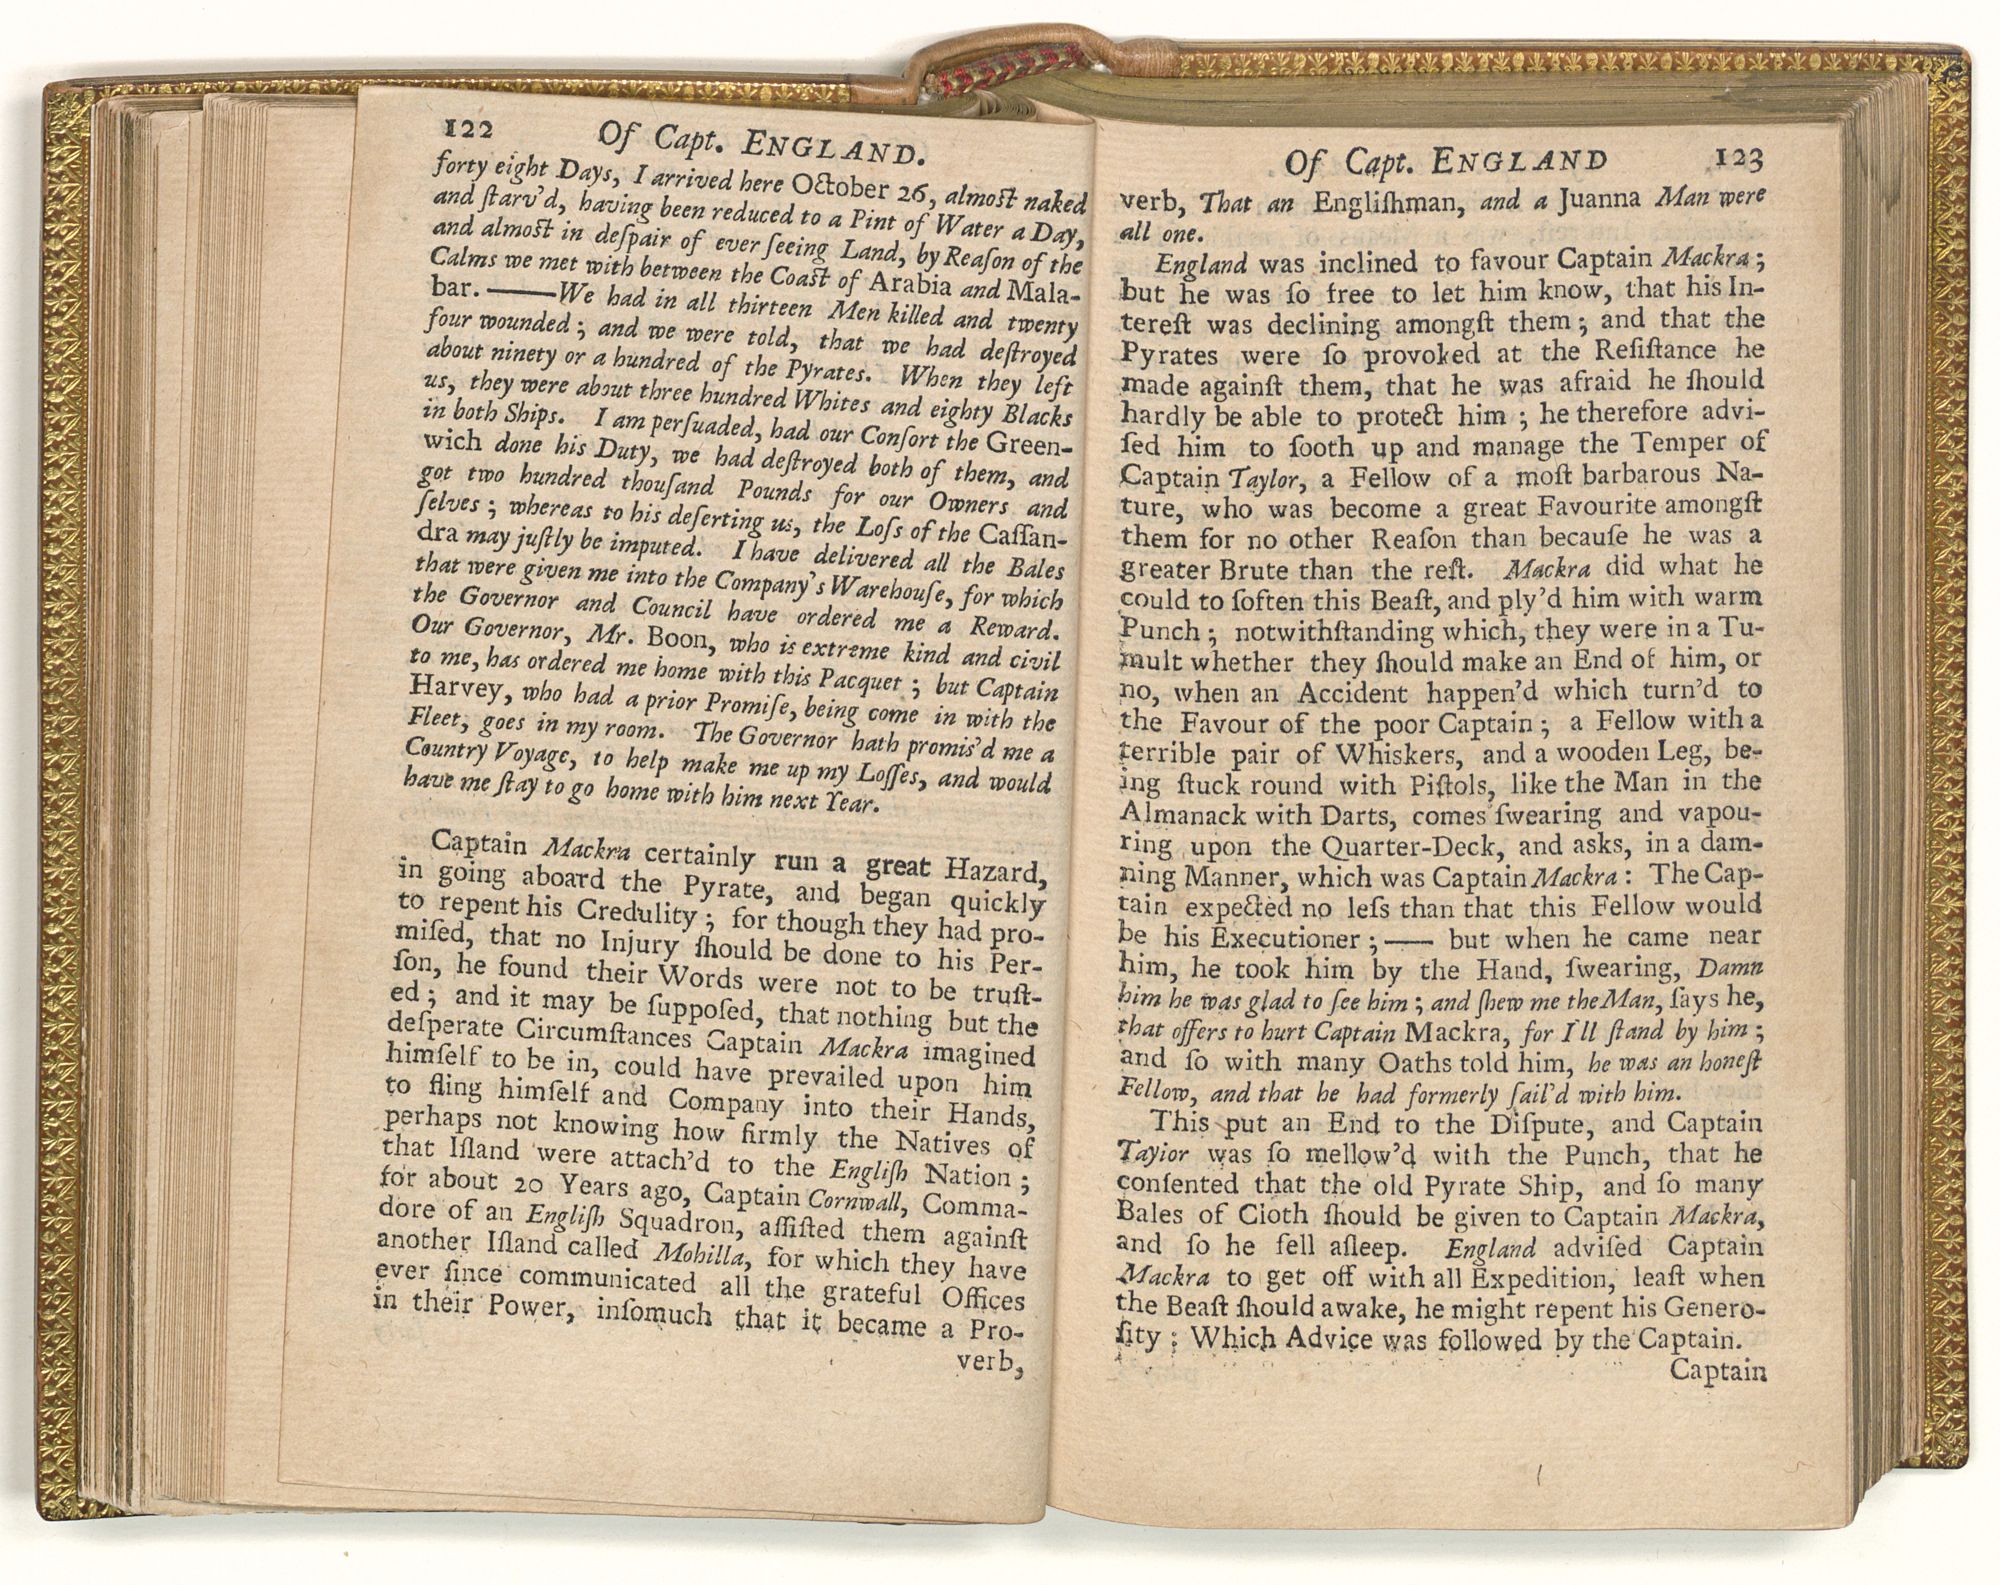 122 Of Capt. ENGLAND.
forty eight Days, I arrived here October 26, almost naked
and ſtarv'd, having been reduced to a Pint of Water a Day,
and almost in deſpair of ever ſeeing Land, by Reaſon of the
Calms we met with between the Coast of Arabia and Mala-
bar. ——We had in all thirteen Men killed and twenty
four wounded; and we were told, that we had deſtroyed
about ninety or a hundred of the Pyrates. When they left
us, they were about three hundred Whites and eighty Blacks
in both Ships. I am perſuaded, had our Conſort the Green-
wich done his Duty, we had deſtroyed both of them, and
got two hundred thouſand Pounds for our Owners and
ſelves; whereas to his deſerting us, the Loſs of the Caſſan-
dra may juſtly be imputed. I have delivered all the Bales
that were given me into the Company's Warehouſe, for which
the Governor and Council have ordered me a Reward.
Our Governor, Mr. Boon, who is extreme kind and civil
to me, has ordered me home with this Pacquet; but Captain
Harvey, who had a prior Promiſe, being come in with the
Fleet, goes in my room. The Governor hath promis'd me a
Country Voyage, to help make me up my Loſſes, and would
have me ſtay to go home with him next Year.
Captain Mackra certainly run a great Hazard,
in going aboard the Pyrate, and began quickly
to repent his Credulity; for though they had pro-
miſed, that no Injury ſhould be done to his Per-
ſon, he found their Words were not to be truſt-
ed; and it may be ſuppoſed, that nothing but the
deſperate Circumſtances Captain Mackra imagined
himſelf to be in, could have prevailed upon him
to fling himſelf and Company into their Hands,
perhaps not knowing how firmly the Natives of
that Iſland were attach'd to the Engliſh Nation;
for about 20 Years ago, Captain Cornwall, Comma-
dore of an Engliſh Squadron, aſſiſted them againſt
another Iſland called Mohilla, for which they have
ever ſince communicated all the grateful Offices
in their Power, inſomuch that it became a Pro-
verb,
Of Capt. ENGLAND 123
verb, That an Engliſhman, and a Juanna Man were
all one.
England was inclined to favour Captain Mackra;
but he was ſo free to let him know, that his In-
tereſt was declining amongſt them; and that the
Pyrates were ſo provoked at the Reſiſtance he
made againſt them, that he was afraid he ſhould
hardly be able to protect him; he therefore advi-
ſed him to ſooth up and manage the Temper of
Captain Taylor, a Fellow of a moſt barbarous Na-
ture, who was become a great Favourite amongſt
them for no other Reaſon than becauſe he was a
greater Brute than the reſt. Mackra did what he
could to ſoften this Beaſt, and ply'd him with warm
Punch; notwithſtanding which, they were in a Tu-
mult whether they ſhould make an End of him, or
no, when an Accident happen'd which turn'd to
the Favour of the poor Captain; a Fellow with a
terrible pair of Whiskers, and a wooden Leg, be-
ing ſtuck round with Piſtols, like the Man in the
Almanack with Darts, comes ſwearing and vapou-
ring upon the Quarter-Deck, and asks, in a dam-
ning Manner, which was Captain Mackra: The Cap-
tain expected no leſs than that this Fellow would
be his Executioner;—— but when he came near
him, he took him by the Hand, ſwearing, Damn
him he was glad to ſee him; and ſhew me the Man, ſays he,
that offers to hurt Captain Mackra, for I'll ſtand by him;
and ſo with many Oaths told him, he was an honeſt
Fellow, and that he had formerly ſail'd with him.
This put an End to the Diſpute, and Captain
Tayior was ſo mellow'd with the Punch, that he
conſented that the old Pyrate Ship, and ſo many
Bales of Cloth ſhould be given to Captain Mackra,
and ſo he fell aſleep. England adviſed Captain
Mackra to get off with all Expedition, leaſt when
the Beaſt ſhould awake, he might repent his Genero-
ſity: Which Advice was followed by the Captain.
Captain